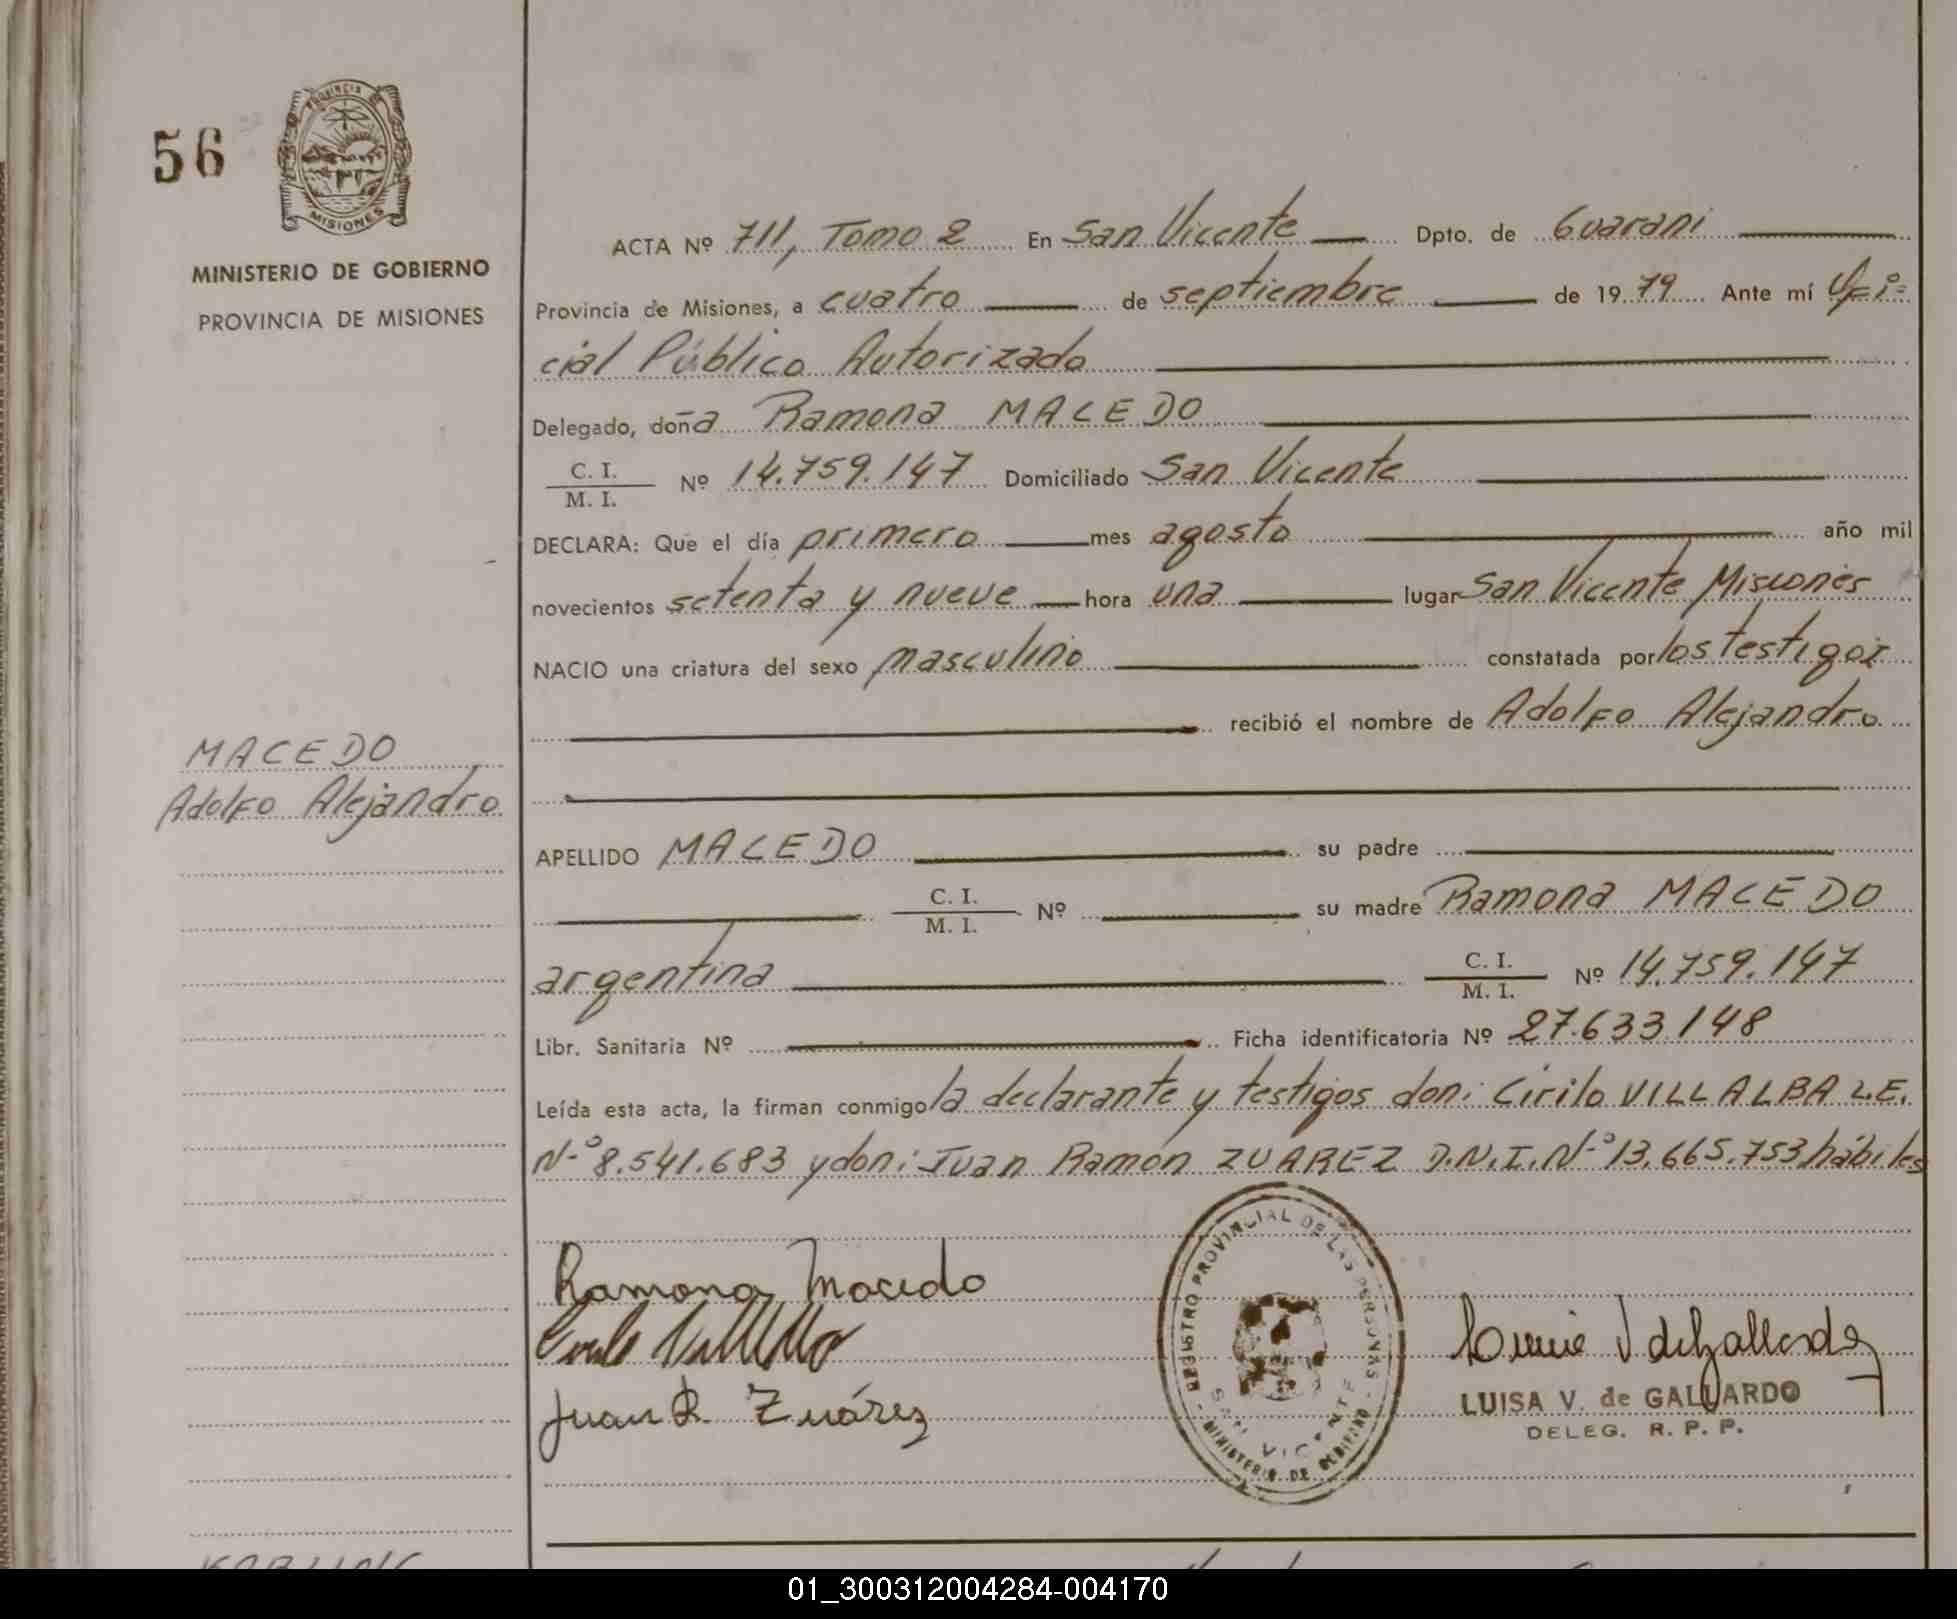 56
PROVINCIA DE
MISIONES
MINISTERIO DE GOBIERNO
PROVINCIA DE MISIONES
MACEDO
Adolfo Alejandro
ACTA Nº 711, Tomo 2 En San Vicente Dpto. de Guarani
Provincia de Misiones, a cuatro de septiembre de 1979 Ante mí Ofi=
cial Público Autorizado
Delegado, doña Ramona MACEDO
C. I.
M. I. Nº 14.759.147 Domiciliado San Vicente
DECLARA: Que el día primero mes agosto año mil
novecientos setenta y nueve hora una lugar San Vicente Misiones
NACIO una criatura del sexo masculino constatada por los testigos
recibió el nombre de Adolfo Alejandro
APELLIDO MACEDO su padre
C. I.
M. I. Nº su madre Ramona MACEDO
argentina C. I.
M. I. Nº 14.759.147
Libr. Sanitaria Nº Ficha identificatoria Nº 27.633.148
Leída esta acta, la firman conmigo la declarante y testigos don: Cirilo VILLALBA L.E.
Nº 8.541.683 y don: Juan Ramón ZUAREZ D.N.I. Nº 13.665.753 hábiles
Ramona Macedo
Juan R. Zuárez
REGISTRO PROVINCIAL DE LAS PERSONAS
SAN VICENTE
MINISTERIO DE GOBIERNO
LUISA V. de GALLARDO
DELEG. R. P. P.
01_300312004284-004170